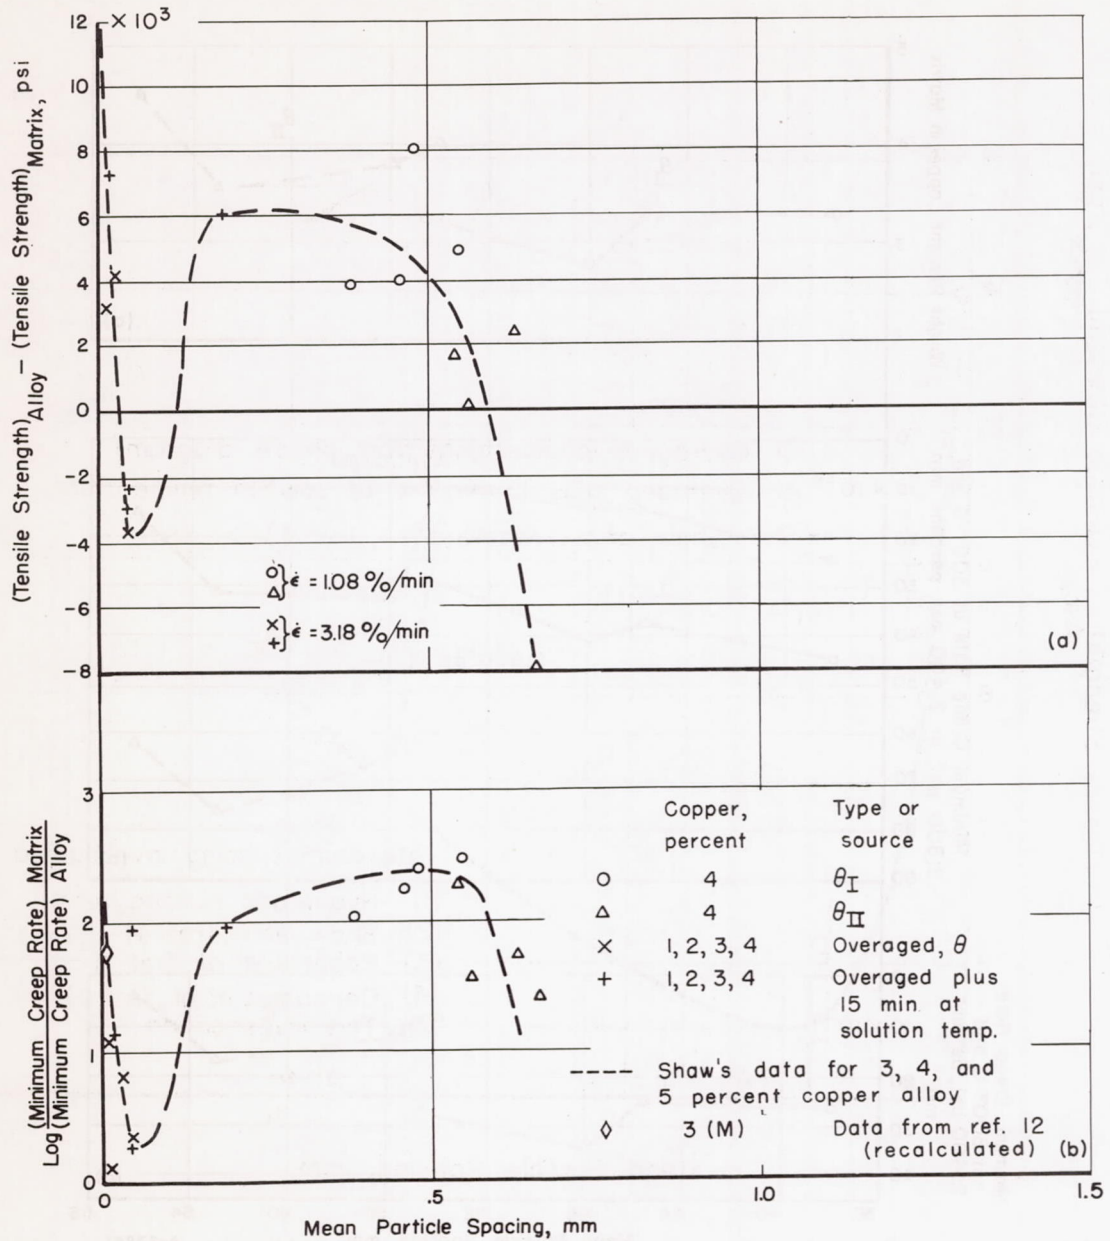 12 × 10³
10
8
6
4
2
0
−2
−4
−6
−8
(Tensile Strength)Alloy − (Tensile Strength)Matrix, psi
○ } ε̇ = 1.08 %/min
△
× } ε̇ = 3.18 %/min
+
(a)
3
2
1
0
Log (Minimum Creep Rate) Matrix
(Minimum Creep Rate) Alloy
Copper, Type or
percent source
○ 4 θI
△ 4 θII
× 1, 2, 3, 4 Overaged, θ
+ 1, 2, 3, 4 Overaged plus
15 min at
solution temp.
Shaw's data for 3, 4, and
5 percent copper alloy
◇ 3 (M) Data from ref. 12
(recalculated) (b)
0 .5 1.0 1.5
Mean Particle Spacing, mm